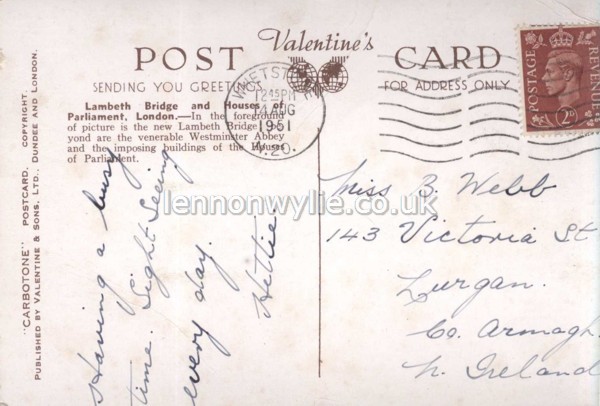 POST Valentine's CARD
SENDING YOU GREETINGS.
FOR ADDRESS ONLY
Lambeth Bridge and Houses of
Parliament, London.—In the foreground
of picture is the new Lambeth Bridge
yond are the venerable Westminster Abbey
and the imposing buildings of the Houses
of Parliament.
WHETSTONE
12 45 PM
AUG
1951
N.20.
POSTAGE
REVENUE
2D
"CARBOTONE" POSTCARD. COPYRIGHT.
PUBLISHED BY VALENTINE & SONS, LTD., DUNDEE AND LONDON.
Having a busy
time. Sight Seeing
every day.
Hettie.
Miss B. Webb
143 Victoria St
Lurgan.
Co. Armagh.
N. Ireland
lennonwylie.co.uk